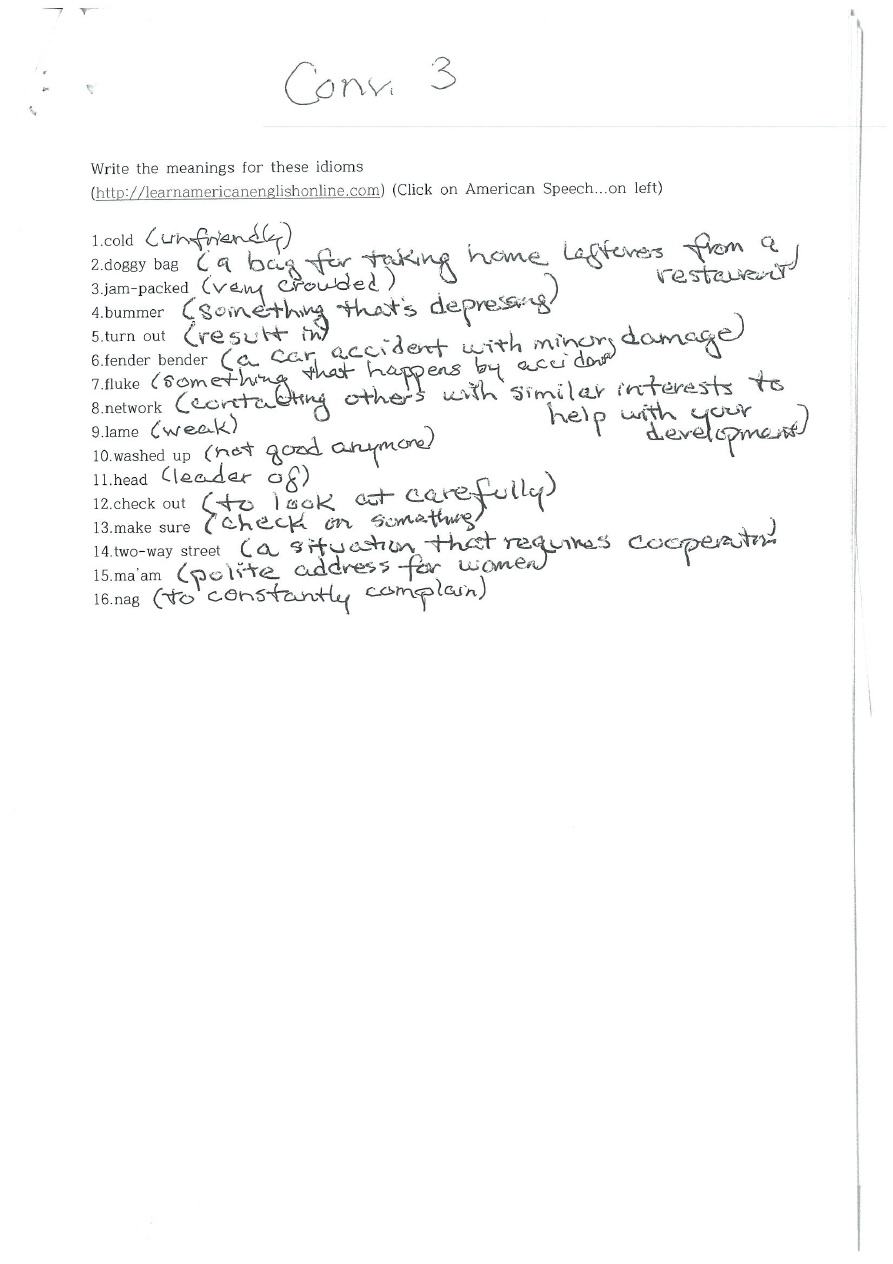 Conv. 3
Write the meanings for these idioms
(http://learnamericanenglishonline.com) (Click on American Speech...on left)
1.cold (unfriendly)
2.doggy bag (a bag for taking home leftovers from a
restaurant)
3.jam-packed (very crowded)
4.bummer (something that's depressing)
5.turn out (result in)
6.fender bender (a car accident with minor damage)
7.fluke (something that happens by accident)
8.network (contacting others with similar interests to
help with your
development)
9.lame (weak)
10.washed up (not good anymore)
11.head (leader of)
12.check out (to look at carefully)
13.make sure (check on something)
14.two-way street (a situation that requires cooperation)
15.ma'am (polite address for women)
16.nag (to constantly complain)